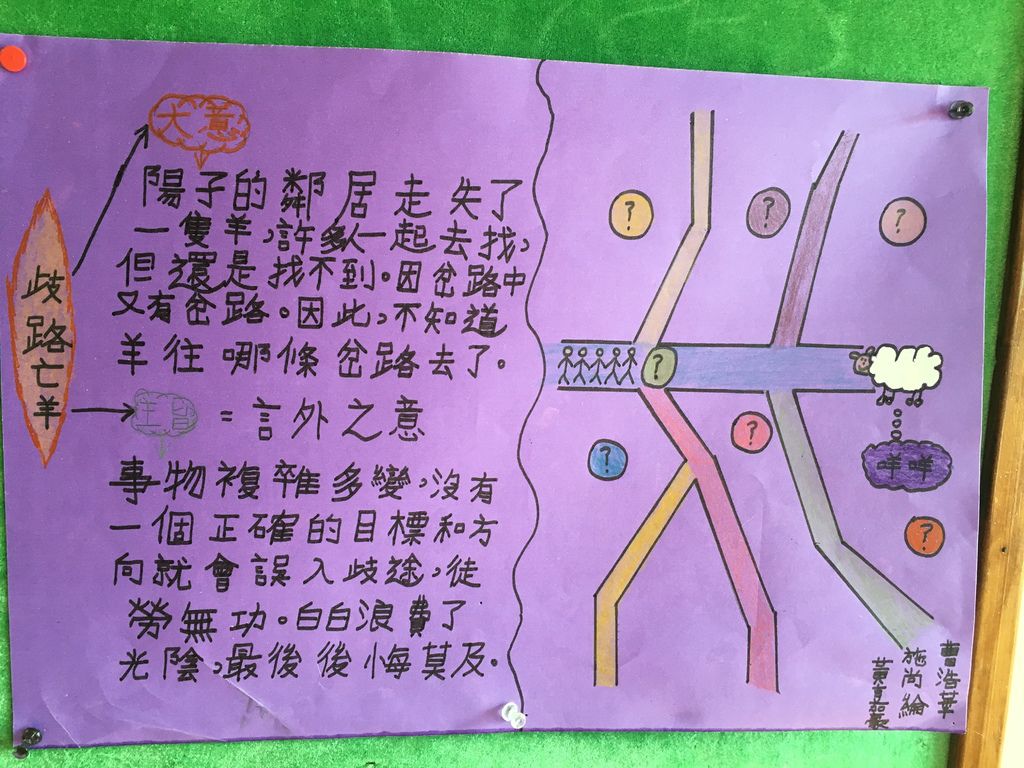 歧路亡羊
大意
陽子的鄰居走失了
一隻羊，許多人一起去找，
但還是找不到。因岔路中
又有岔路。因此，不知道
羊往哪條岔路去了。
主旨 = 言外之意
事物複雜多變，沒有
一個正確的目標和方
向就會誤入歧途，徒
勞無功。白白浪費了
光陰，最後後悔莫及。
?
?
?
?
?
?
?
咩咩
曹浩華
施尚綸